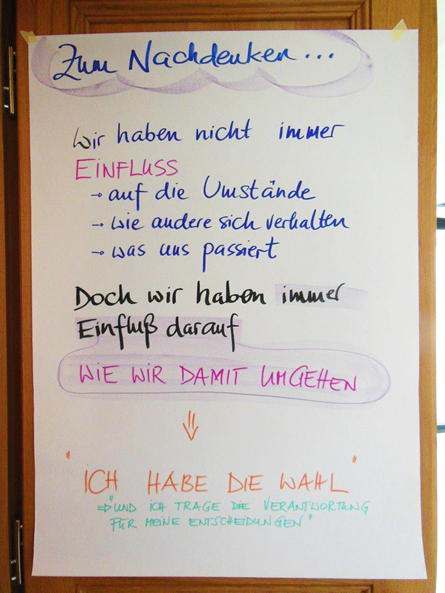 Zum Nachdenken...
Wir haben nicht immer
EINFLUSS
→ auf die Umstände
→ wie andere sich verhalten
→ was uns passiert
Doch wir haben immer
Einfluß darauf
WIE WIR DAMIT UMGEHEN
⇓
"ICH HABE DIE WAHL"
⇒ "UND ICH TRAGE DIE VERANTWORTUNG
FÜR MEINE ENTSCHEIDUNGEN"